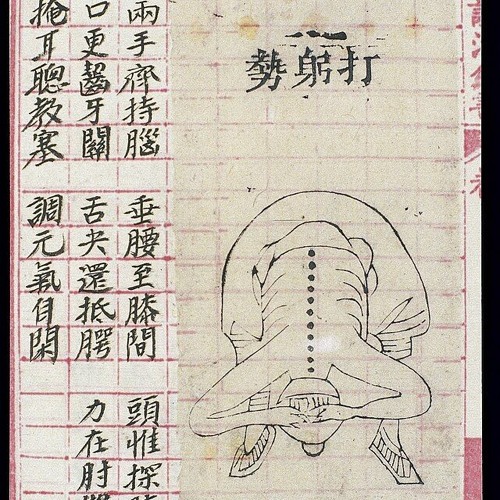 打躬勢
兩手齊持腦 垂腰至膝間 頭惟探
口更齧牙關 舌尖還抵腭 力在肘
掩耳聰教塞 調元氣自閑